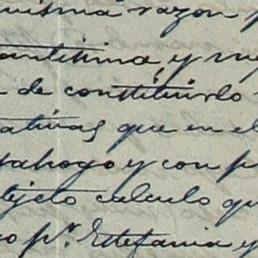 misma razon p
antisima y my
de constituirlo
ativas que en el
sahogo y con p
bjeto calculo qu
o p.r Estefania y